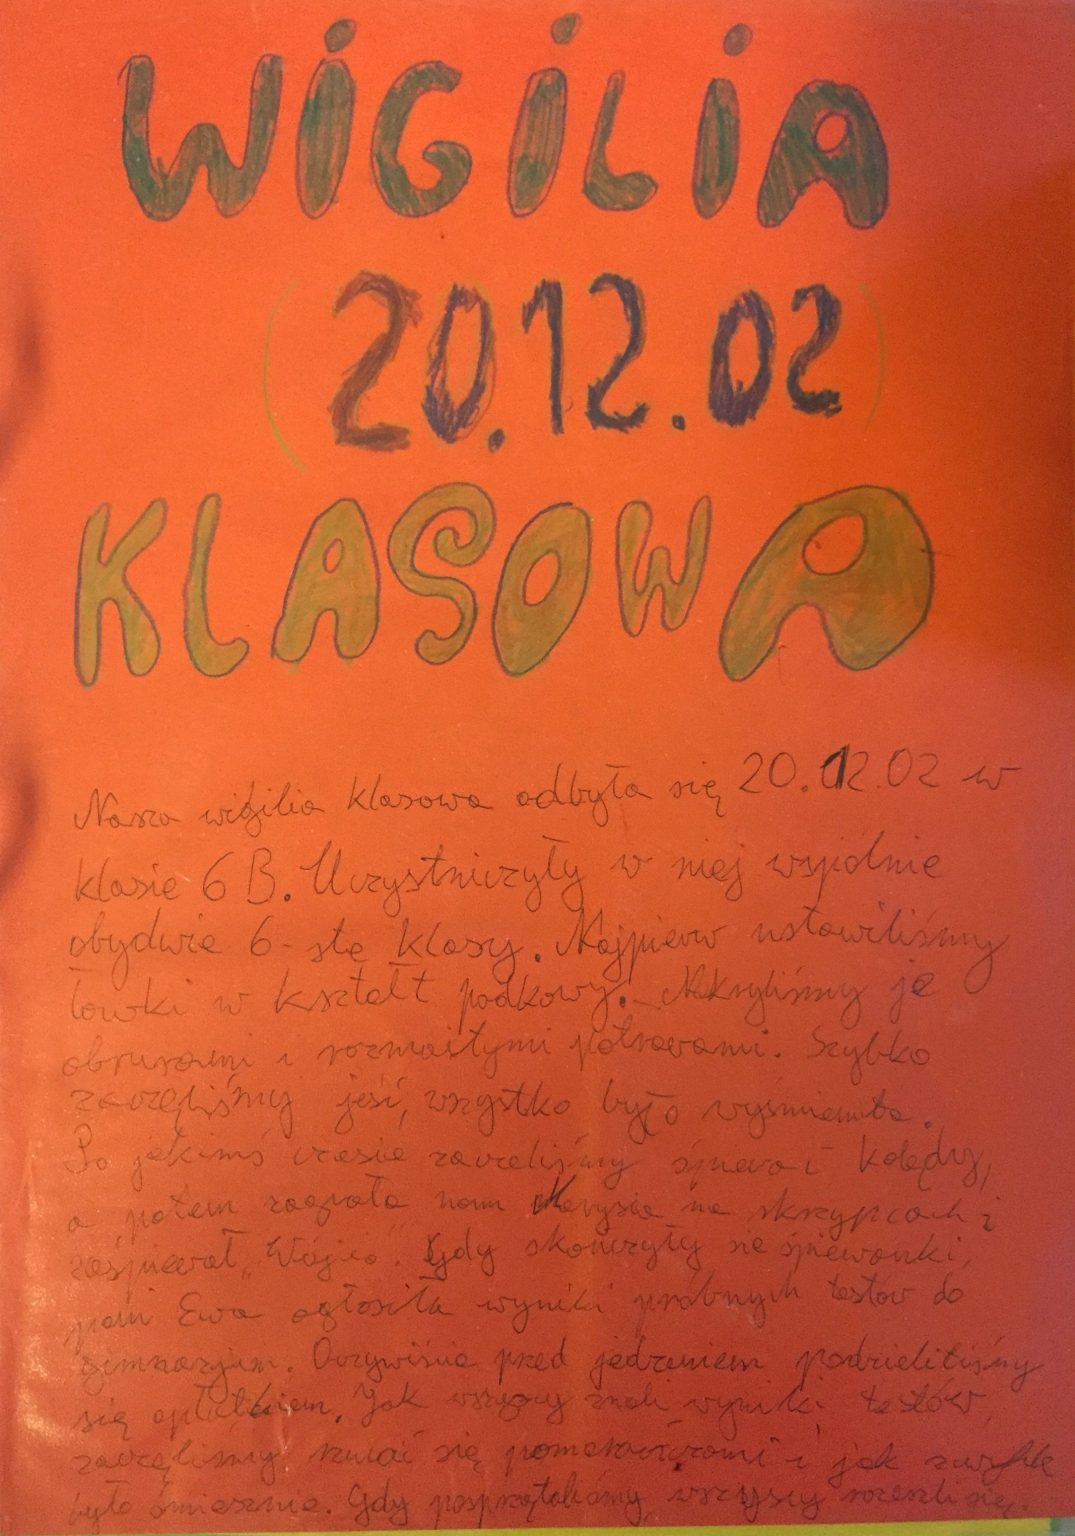 WIGILIA
(20.12.02)
KLASOWA
Nasza wigilia klasowa odbyła się 20.12.02 w
klasie 6 B. Uczystniczyły w niej wspólnie
obydwie 6-ste klasy. Najpierw ustawiliśmy
ławki w kształt podkowy. Nakryliśmy je
obrusami i rozmaitymi potrawami. Szybko
zaczęliśmy jeść, wszystko było wyśmienite.
Po jakimś czasie zaczeliśmy śpiewać kolędy,
a potem zagrała nam Marysia na skrzypcach i
zaśpiewał „Wójcio”. Gdy skończyły się śpiewanki,
pani Ewa ogłosiła wyniki próbnych testów do
gimnazjum. Oczywiście przed jedzeniem podzieliliśmy
się opłatkiem. Jak wszyscy znali wyniki testów,
zaczęliśmy rzucać się pomarańczami i jak zwykle
było śmiesznie. Gdy posprzątaliśmy wszyscy rozeszli się.